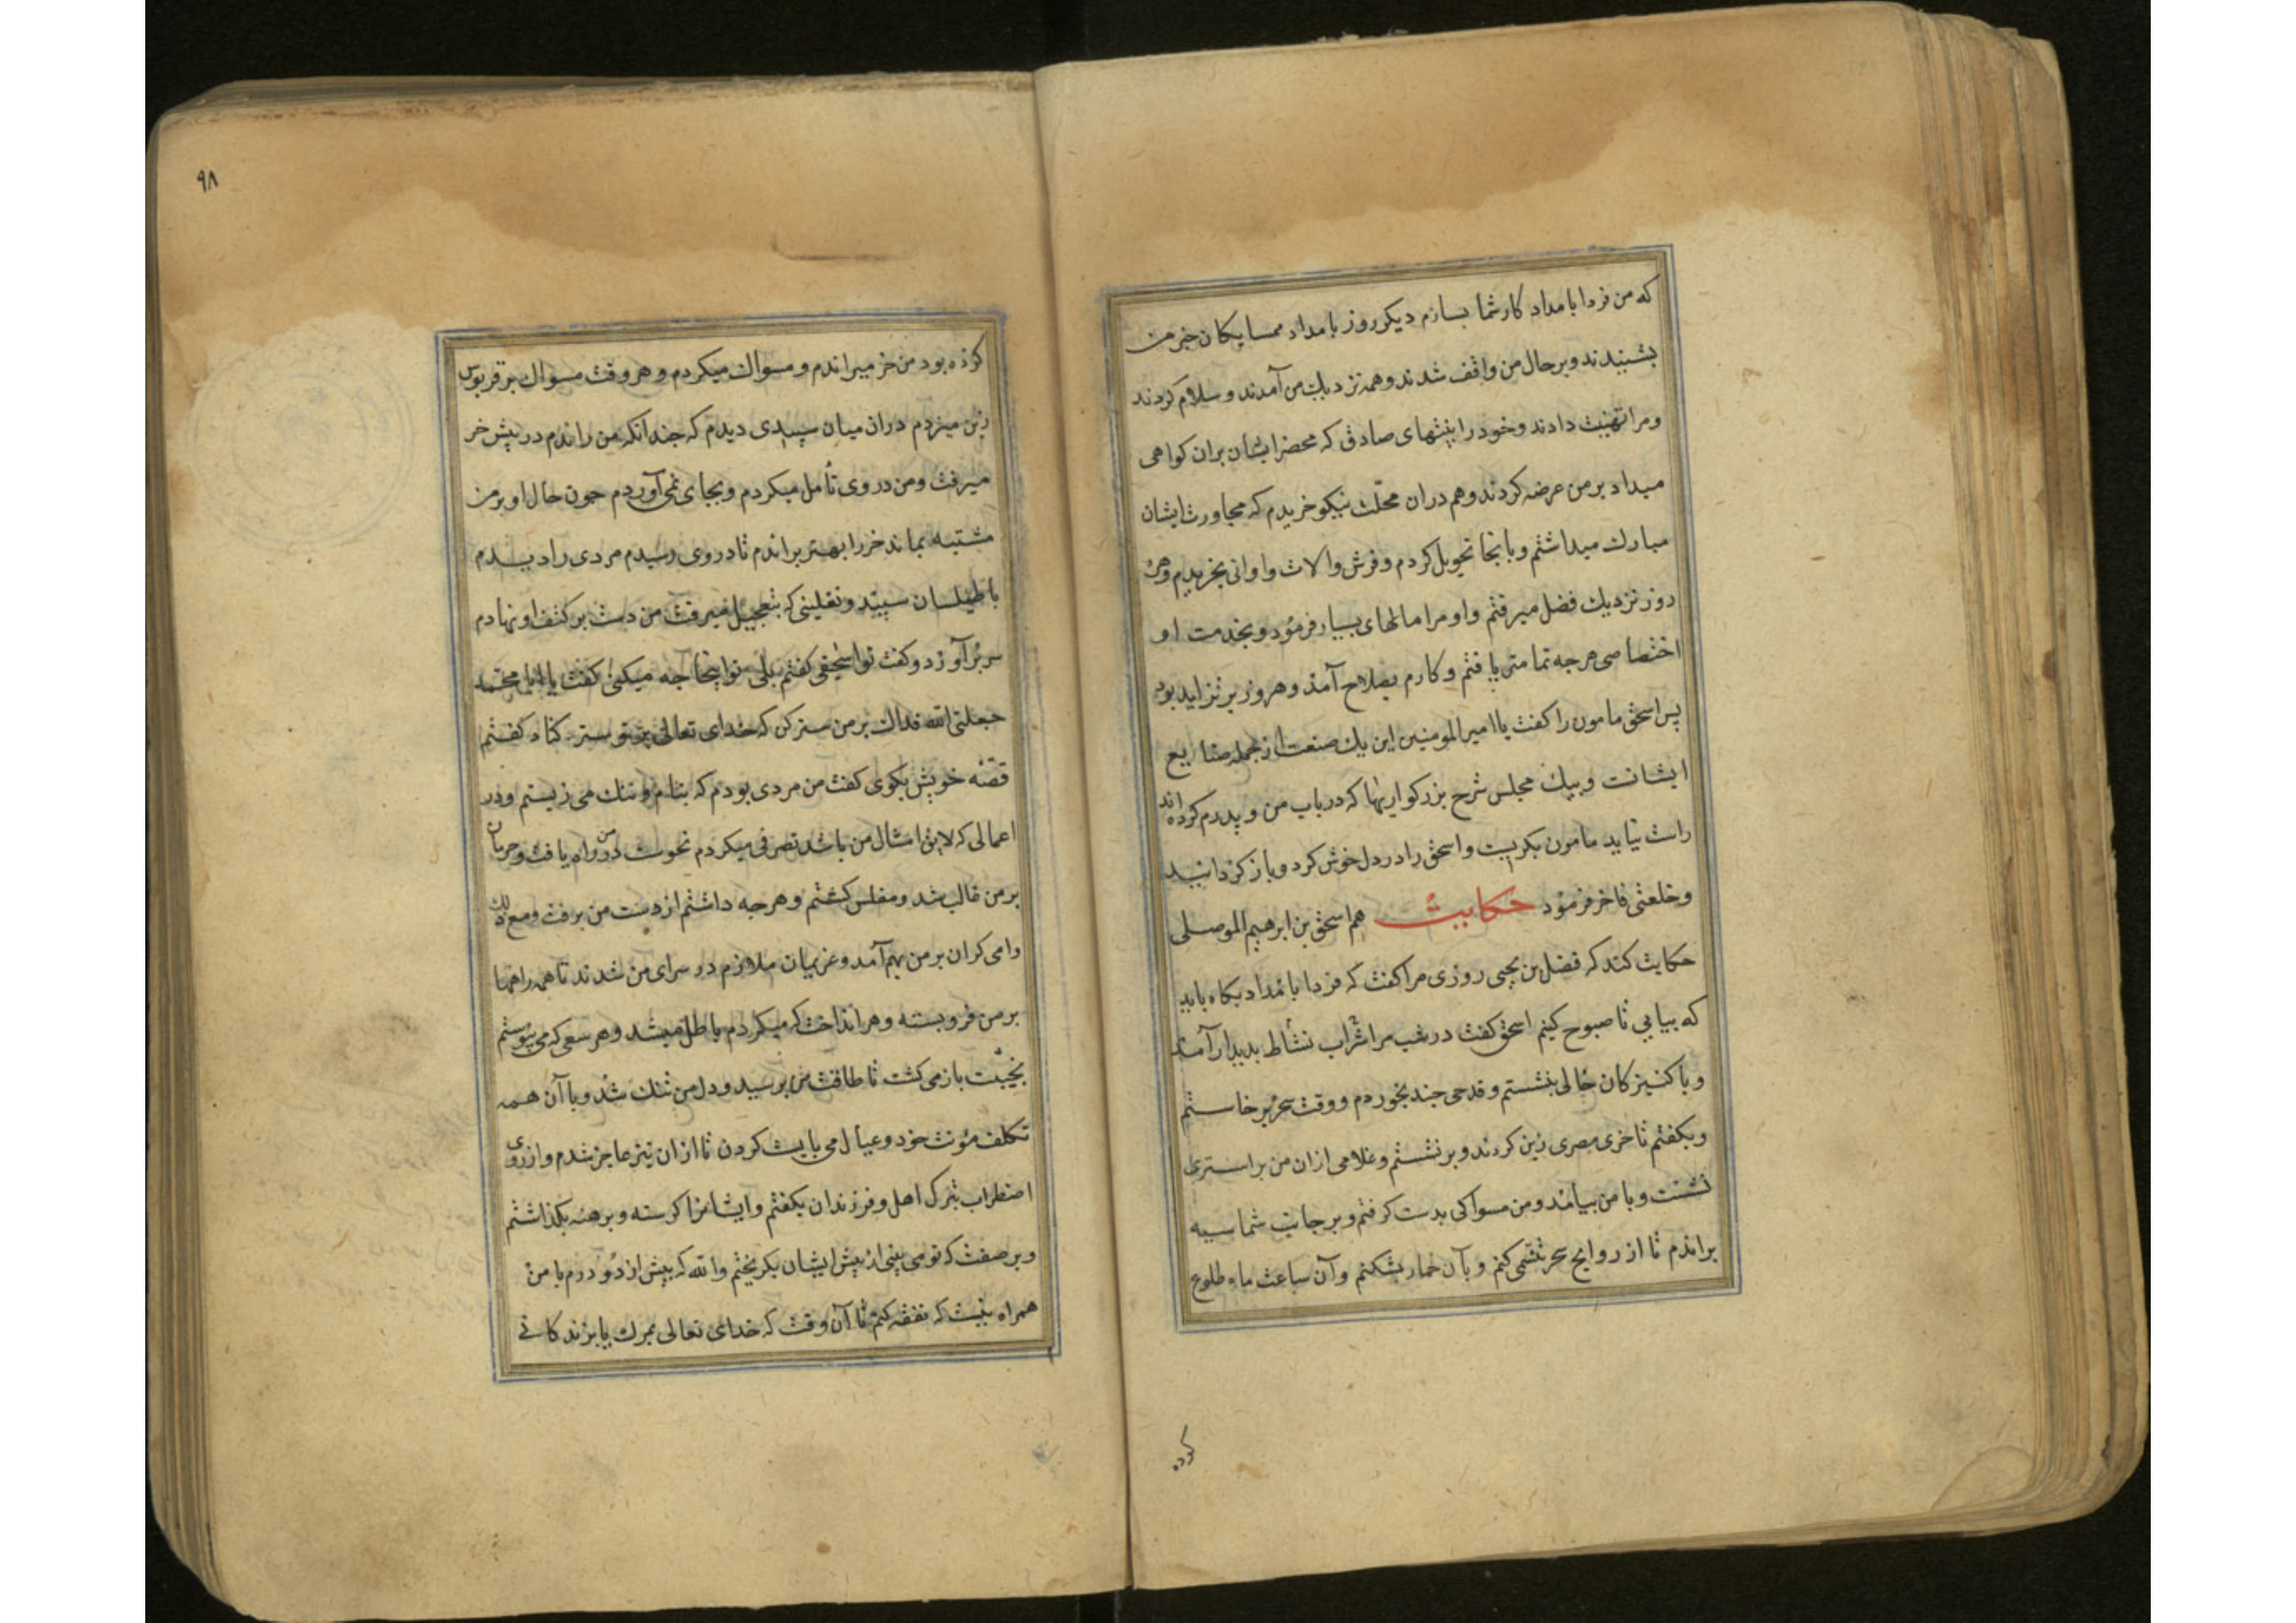 که من فردا بامداد کار شما بسازم دیکر روز بامداد همسایکان خبر من
بشنیدند و بر حال من واقف شدند و همه نزدیک من آمدند و سلام کردند
و مرا تهنیت دادند و خود را بنیتهای صادق که محضر ایشان بران کواهی
میداد بر من عرضه کردند و هم دران محلّت نیکو خریدم که مجاورت ایشان
مبارک میداشتم و بانجا تحویل کردم و فرش و الات و اوانی بخریدم و هر
روز نزدیک فضل میرفتم و او مرا مالهای بسیار فرمود و بخدمت او
اختصاصی هرجه تمامتر یافتم و کارم بصلاح آمذ و هر روز بر تزاید بود
پس اسحق مامون را کفت یا امیر المومنین این یک صنعت از جمله صنایع
ایشانست و بیک مجلس شرح بزرکواریها که در باب من و پدرم کرده اند
راست نیاید مامون بکریست و اسحق را در دل خوش کرد و باز کردانید
و خلعتی فاخر فرمود حکایت هم اسحق بن ابرهیم الموصلی
حکایت کند که فضل بن یحیی روزی مرا کفت که فردا بامداد بکاه باید
که بیایی تا صبوح کنیم اسحق کفت در شب مرا شراب نشاط بدیدار آمد
و با کنیزکان خالی بنشستم و قدحی جند بخوردم و وقت سحر برخاستم
و بکفتم تا خری مصری زین کردند و برنشستم و غلامی ازان من بر استری
نشست و با من بیامد و من مسواکی بدست کرفتم و بر جانب شماسیه
براندم تا از روایح سحر تنسّمی کنم و بآن خمار بشکنم و آن ساعت ماه طلوع
کرده
٩٨
کرده بود من خر میراندم و مسواک میکردم و هر وقت مسواک بر قربوس
زین میزدم دران میان سپیدی دیدم که جندانکه من راندم در پیش خر
میرفت و من در وی تأمل میکردم و بجای نمی آوردم جون حال او بر من
مشتبه بماند خر را بهتر براندم تا در وی رسیدم مردی را دیدم
با طیلسان سپید و نعلینی که بتعجیل میرفت من دست بر کتف او نهادم
سر برآورد و کفت تو اسحقی کفتم بلی تو اینجا جه میکنی کفت یا ابا محمد
جعلنی الله فداک بر من ستر کن که خدای تعالی بر تو ستر کناد کفتم
قصّه خویش بکوی کفت من مردی بودم که بنام و ننک می زیستم و در
اعمالی که لایق امثال من باشد تصرفی میکردم نحوست در من راه یافت و حرمان
بر من غالب شد و مفلس کشتم و هرجه داشتم از دست من برفت و مع ذلک
وامی کران بر من بهم آمد و غریمان ملازم در سرای من شدند تا همه راهها
بر من فرو بسته و هر انداخت که میکردم باطل میشد و هر سعی که می پیوستم
بخیبت باز می کشت تا طاقت من برسید و دل من تنک شد و با آن همه
تکلف مؤنت خود و عیال می بایست کردن تا ازان نیز عاجز شدم و از روی
اضطراب بترک اهل و فرزندان بکفتم و ایشانرا کرسنه و برهنه بکذاشتم
و بر صفت که تو می بینی از پیش ایشان بکریختم و الله که بیش از دو درم با من
همراه نیست که نفقه کنم تا آن وقت که خدای تعالی بمرک یا بزندکانی